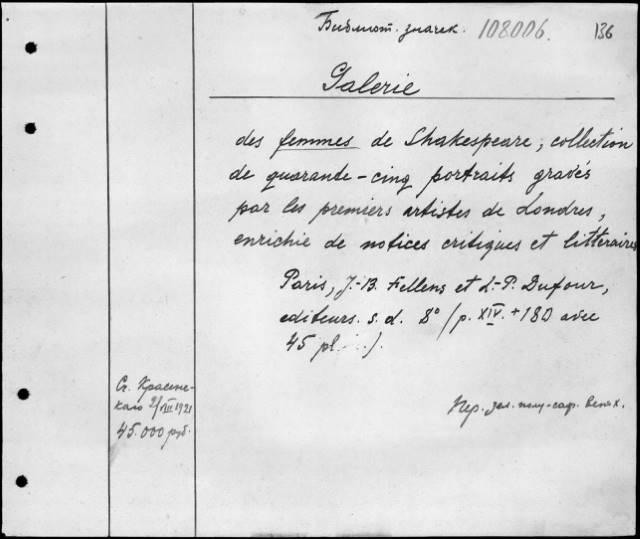 Библиот. значек. 108006. 136
Galerie
des femmes de Shakespeare, collection
de quarante-cinq portraits gravés
par les premiers artistes de Londres,
enrichie de notices critiques et littéraires
Paris, J.-B. Fellens et L.-P. Dufour,
editeurs. s. d. 8° (p. XIV. + 180 avec
45 pl. ).
Ст. Красен-
каго 2/VIII 1921
45.000 руб.
Пер. зел. полу-саф.